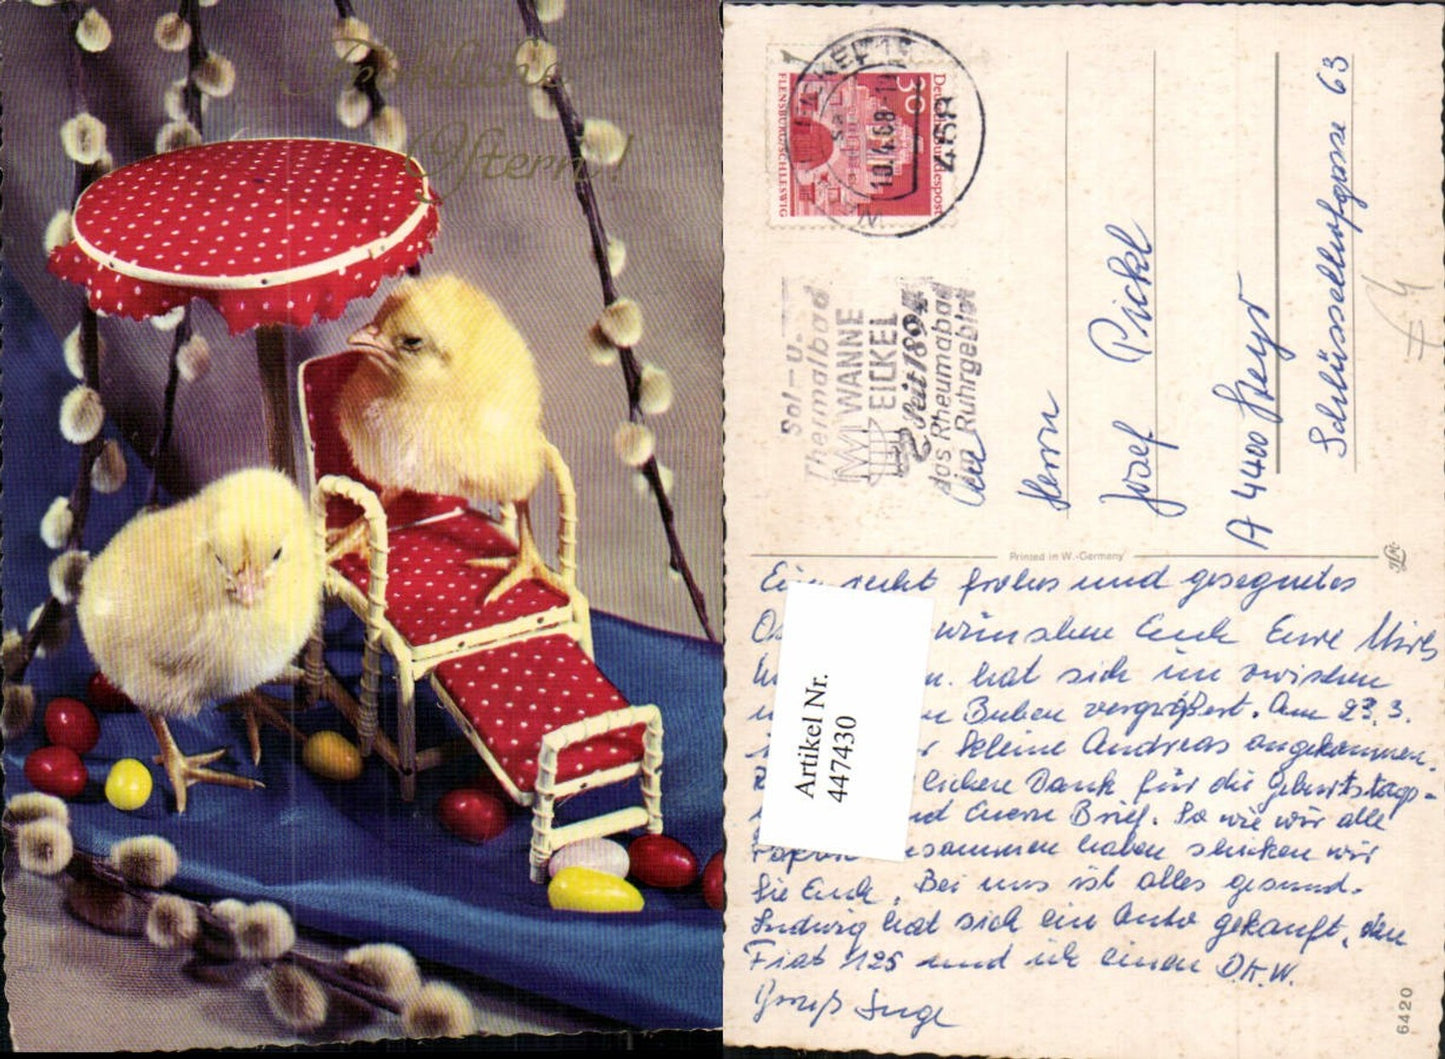 Fröhliche
Ostern!
Deutsche Bundespost
30
FLENSBURG/SCHLESWIG
10.4.68
468
Sol- u.
Thermalbad
WANNE
EICKEL
Seit 1894
das Rheumabad
im Ruhrgebiet
Herrn
Josef Pickl
A 4400 Steyr
Schlüsselhofgasse 63
Printed in W.-Germany
Ein recht frohes und gesegnetes
wünschen Euch Eure
hat sich inzwischen
Buben vergrößert. Am 23. 3.
kleine Andreas angekommen.
Dank für die Geburtstags-
und Euern Brief. So wie wir alle
zusammen haben schicken wir
Sie Euch. Bei uns ist alles gesund.
Ludwig hat sich ein Auto gekauft, den
Fiat 125 und ich einen D.K.W.
Gruß Inge
6420
Artikel Nr.
447430